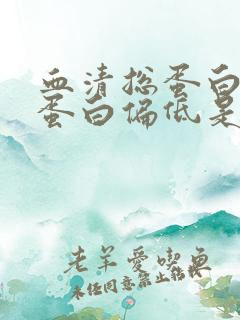 血清总蛋白
蛋白偏低是
老羊爱吃鱼
未经同意禁止转载